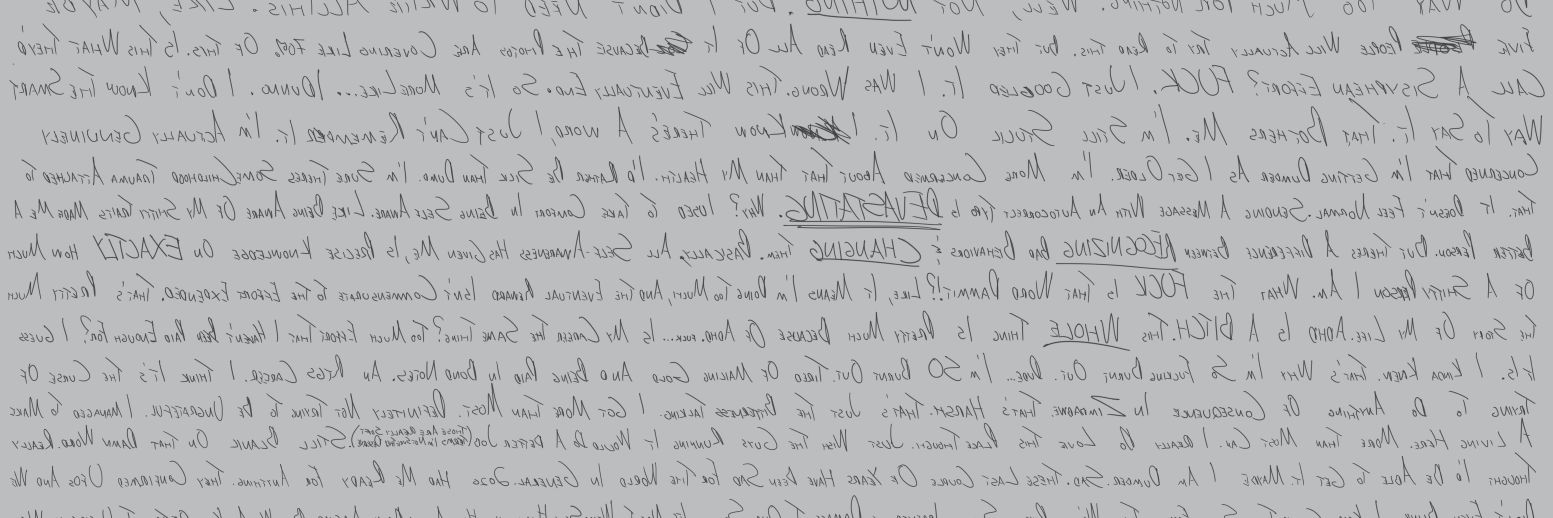 Do Way Too Much For Nothing. Well, Not NOTHING. But I Didn't Need To Write All This. Like, Maybe
Five People Will Actually Try To Read This. But They Won't Even Read All Of It Because The Photos Are Covering Like 70% Of This. Is This What They'd
Call A Sisyphean Effort? FUCK. I Just Googled It. I Was Wrong. This Will Eventually End. So It's More Like... IDunno. I Don't Know The Smart
Way To Say It. That Bothers Me. I'm Still Stuck On It. I Know There's A Word, I Just Can't Remember It. I'm Actually Genuinely
Concerned That I'm Getting Dumber As I Get Older. I'm More Concerned About That Than My Health. I'd Rather Be Sick Than Dumb. I'm Sure Theres Some Childhood Trauma Attached To
That. It Doesn't Feel Normal. Sending A Message With An Autocorrect Typo Is DEVASTATING. Why? I Used To Take Comfort In Being Self Aware. Like Being Aware Of My Shitty Traits Made Me A
Better Person. But Theres A Difference Between RECOGNIZING Bad Behaviors & CHANGING Them. Basically, All Self-Awareness Has Given Me, Is Precise Knowledge On EXACTLY How Much
Of A Shitty Person I Am. What The FUCK Is That Word Dammit!? Like, It Means I'm Doing Too Much, And The Eventual Reward Isn't Commensurate To The Effort Expended. That's Pretty Much
The Story Of My Life. ADHD Is A BITCH. This WHOLE Thing Is Pretty Much Because Of ADHD. Fuck... Is My Career The Same Thing? Too Much Effort That I Haven't Been Paid Enough For? I Guess
It Is. I Kinda Knew. That's Why I'm So Fucking Burnt Out. Dude... I'm SO Burnt Out. Tired Of Making Gold And Being Paid In Bond Notes. An RTGS Career. I Think It's The Curse Of
Trying To Do Anything Of Consequence In Zimbabwe. That's Harsh. That's Just The Bitterness Talking. I Got More Than Most. Definitely Not Trying To Be Ungrateful. I Managed To Make
A Living Here. More Than Most Can. I Really Do Love This Place Though. Just Wish The Cunts Running It Would Do A Better Job (Those Are Really Soft Terms). Still Blank On That Damn Word. Really
Thought I'd Be Able To Get It. Maybe I Am Dumber. Sad. These Last Couple Of Years Have Been Sad For The World In General. 2020 Had Me Ready For Anything. They Confirmed UFOs And We